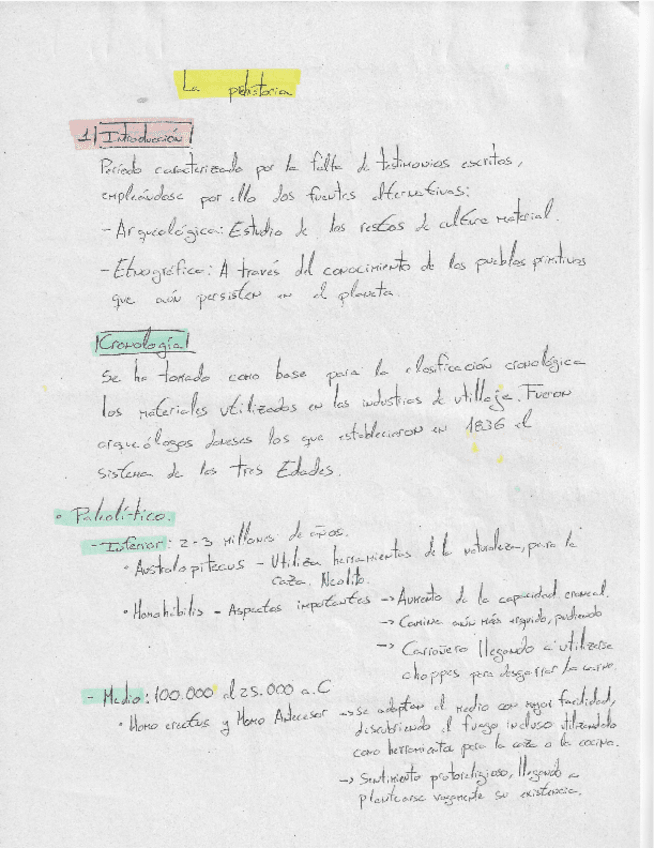 La prehistoria
1) Introducción
Período caracterizado por la falta de testimonios escritos,
empleándose por ello dos fuentes alternativas:
- Arqueológica: Estudio de los restos de cultura material.
- Etnográfica: A través del conocimiento de los pueblos primitivos
que aún persisten en el planeta.
Cronología
Se ha tomado como base para la clasificación cronológica
los materiales utilizados en las industrias de utillaje. Fueron
arqueólogos daneses los que establecieron en 1836 el
sistema de las tres Edades.
• Paleolítico.
- Inferior: 2-3 millones de años.
• Australopitecus - Utiliza herramientas de la naturaleza, para la
caza. Neolito.
• Homohábilis - Aspectos importantes -> Aumento de la capacidad craneal.
-> Camina aún más erguido, pudiendo
-> Carroñero llegando a utilizarse
choppes para desgarrar la carne.
- Medio: 100.000 al 25.000 a.C
• Homo erectus y Homo Antecesor -> se adaptan al medio con mayor facilidad,
descubriendo el fuego incluso utilizándolo
como herramienta para la caza o la cocina.
-> Sentimiento protoreligioso, llegando a
plantearse vagamente su existencia.